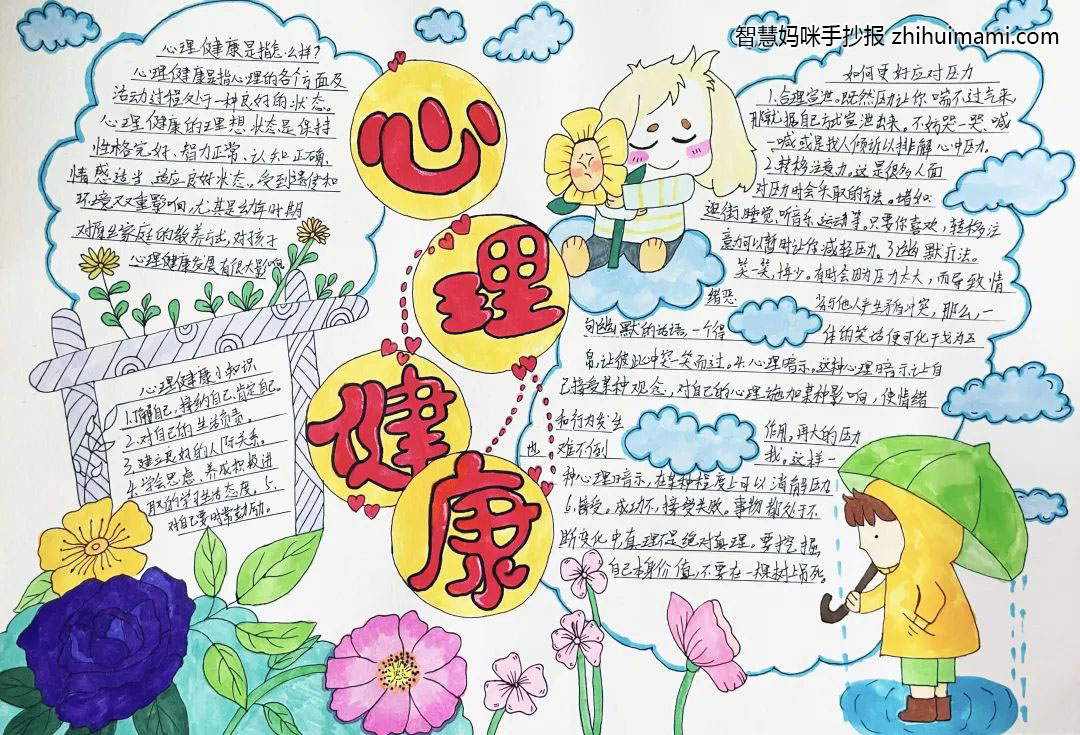 智慧妈咪手抄报 zhihuimami.com
心理健康
心理健康是指怎么样?
心理健康是指心理的各个方面及
活动过程处于一种良好的状态。
心理健康的理想状态是保持
性格完好、智力正常、认知正确、
情感适当、适应良好状态。受到遗传和
环境双重影响,尤其是幼年时期
对原生家庭的教养方式,对孩子
心理健康发展有很大影响
心理健康小知识
1.了解自己,接纳自己,肯定自己。
2.对自己的生活负责。
3.建立良好的人际关系。
4.学会思意、养成积极进
取的学习生活态度。5.
对自己要时常鼓励。
如何更好应对压力
1.合理宣泄。既然压力让你喘不过气来,
那就据自己方式宣泄出来。不妨哭一哭、喊
一喊或是找人倾诉以排解心中压力。
2.转移注意力。这是很多人面
对压力时会采取的方法。诸如
逛街,睡觉,听音乐,运动等。只要你喜欢,转移注
意力可以暂时让你减轻压力。3.幽默疗法。
笑一笑,十年少。有时会因为压力太大,而导致情
绪恶 若与他人产生矛盾冲突,那么,一
句幽默的话语,一个得 体的笑话便可化干戈为玉
帛,让彼此冲突一笑而过。4.心理暗示。这种心理暗示让自
己接受某种观念,对自己的心理施加某种影响,使情绪
和行为发生 作用。再大的压力
也 难不倒 我。这样一
种心理暗示,在某种程度上可以消解压力
6.接受。成功不,接受失败。事物都处于不
断变化中真理不是绝对真理。要挖掘
自己本身价值,不要在一棵树上吊死。